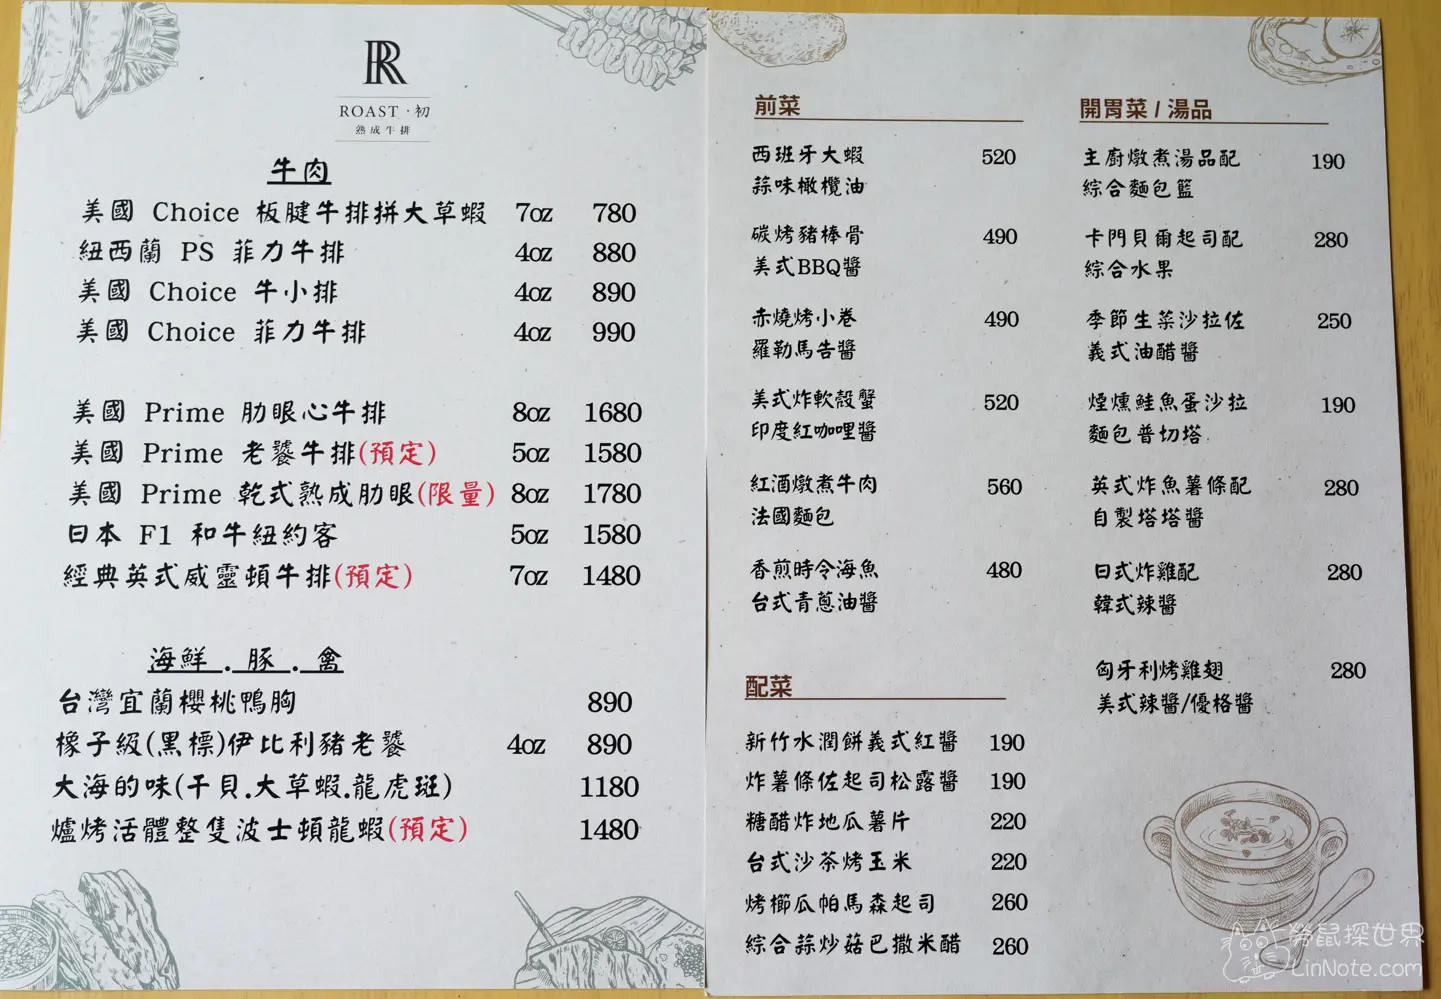 R
ROAST · 初
熟成牛排
牛肉
美國 Choice 板腱牛排拼大草蝦 7oz 780
紐西蘭 PS 菲力牛排 4oz 880
美國 Choice 牛小排 4oz 890
美國 Choice 菲力牛排 4oz 990
美國 Prime 肋眼心牛排 8oz 1680
美國 Prime 老饕牛排(預定) 5oz 1580
美國 Prime 乾式熟成肋眼(限量) 8oz 1780
日本 F1 和牛紐約客 5oz 1580
經典英式威靈頓牛排(預定) 7oz 1480
海鮮.豚.禽
台灣宜蘭櫻桃鴨胸 890
橡子級(黑標)伊比利豬老饕 4oz 890
大海的味(干貝.大草蝦.龍虎斑) 1180
爐烤活體整隻波士頓龍蝦(預定) 1480
前菜
西班牙大蝦 520
蒜味橄欖油
碳烤豬棒骨 490
美式BBQ醬
赤燒烤小卷 490
羅勒馬告醬
美式炸軟殼蟹 520
印度紅咖哩醬
紅酒燉煮牛肉 560
法國麵包
香煎時令海魚 480
台式青蔥油醬
配菜
新竹水潤餅義式紅醬 190
炸薯條佐起司松露醬 190
糖醋炸地瓜薯片 220
台式沙茶烤玉米 220
烤櫛瓜帕馬森起司 260
綜合蒜炒菇巴撒米醋 260
開胃菜 / 湯品
主廚燉煮湯品配 190
綜合麵包籃
卡門貝爾起司配 280
綜合水果
季節生菜沙拉佐 250
義式油醋醬
煙燻鮭魚蛋沙拉 190
麵包普切塔
英式炸魚薯條配 280
自製塔塔醬
日式炸雞配 280
韓式辣醬
匈牙利烤雞翅 280
美式辣醬/優格醬
勞鼠探世界
LinNote.com